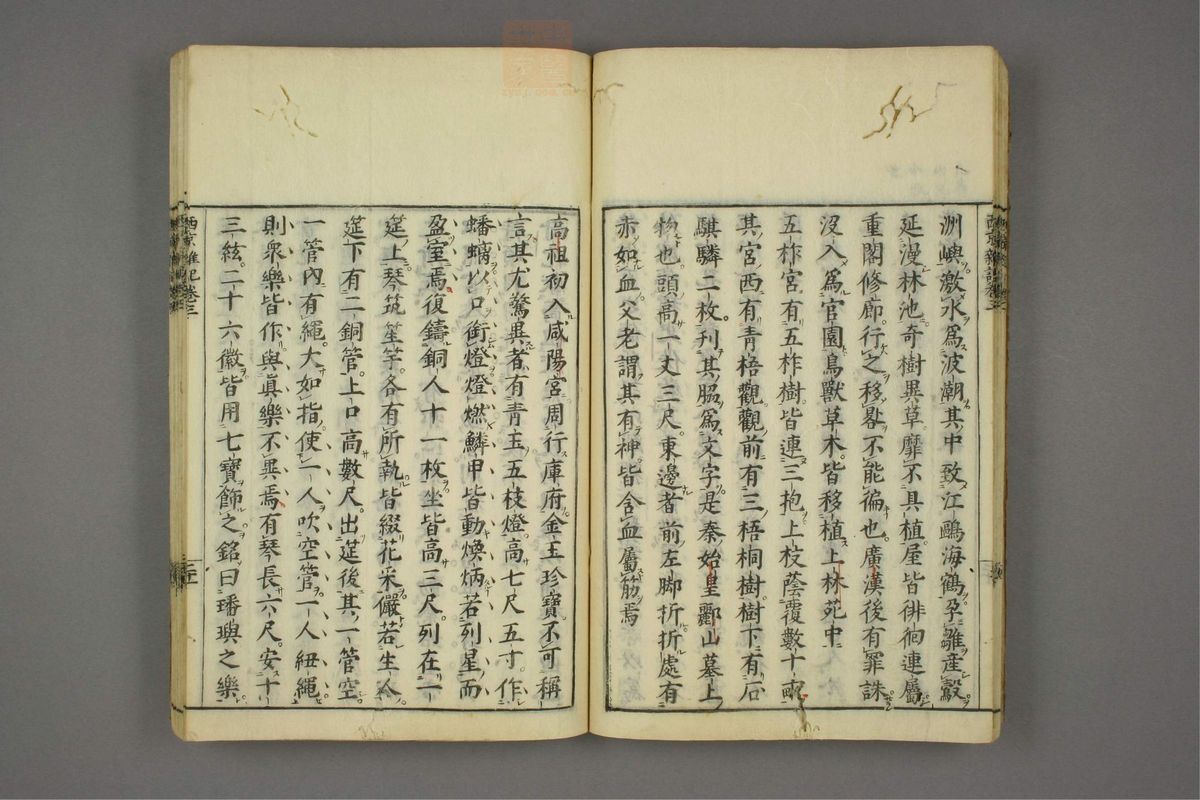 洲嶼激水爲波潮其中致江鷗海鶴孕雛産鷇
延漫林池奇樹異草靡不具植屋皆徘徊連屬
重閣修廊行之移晷不能徧也廣漢後有罪誅
沒入爲官園鳥獸草木皆移植上林苑中
五柞宮有五柞樹皆連三抱上枝蔭覆數十畝
其宮西有青梧觀觀前有三梧桐樹樹下有石
騏驎二枚刋其脇爲文字是秦始皇酈山墓上
物也頭高一丈三尺東邊者前左脚折折處有
赤如血父老謂其有神皆含血屬筋焉
高祖初入咸陽宮周行庫府金玉珍寶不可稱
言其尤驚異者有青玉五枝燈高七尺五寸作
蟠螭以口銜燈燈燃鱗甲皆動煥炳若列星而
盈室焉復鑄銅人十一枚坐皆高三尺列在一
筵上琴筑笙竽各有所執皆綴花采儼若生人
筵下有二銅管上口高數尺出筵後其一管空
一管内有繩大如指使一人吹空管一人紐繩
則衆樂皆作與眞樂不異焉有琴長六尺安十
三絃二十六徽皆用七寶飾之銘曰璠璵之樂
西京雜記卷三